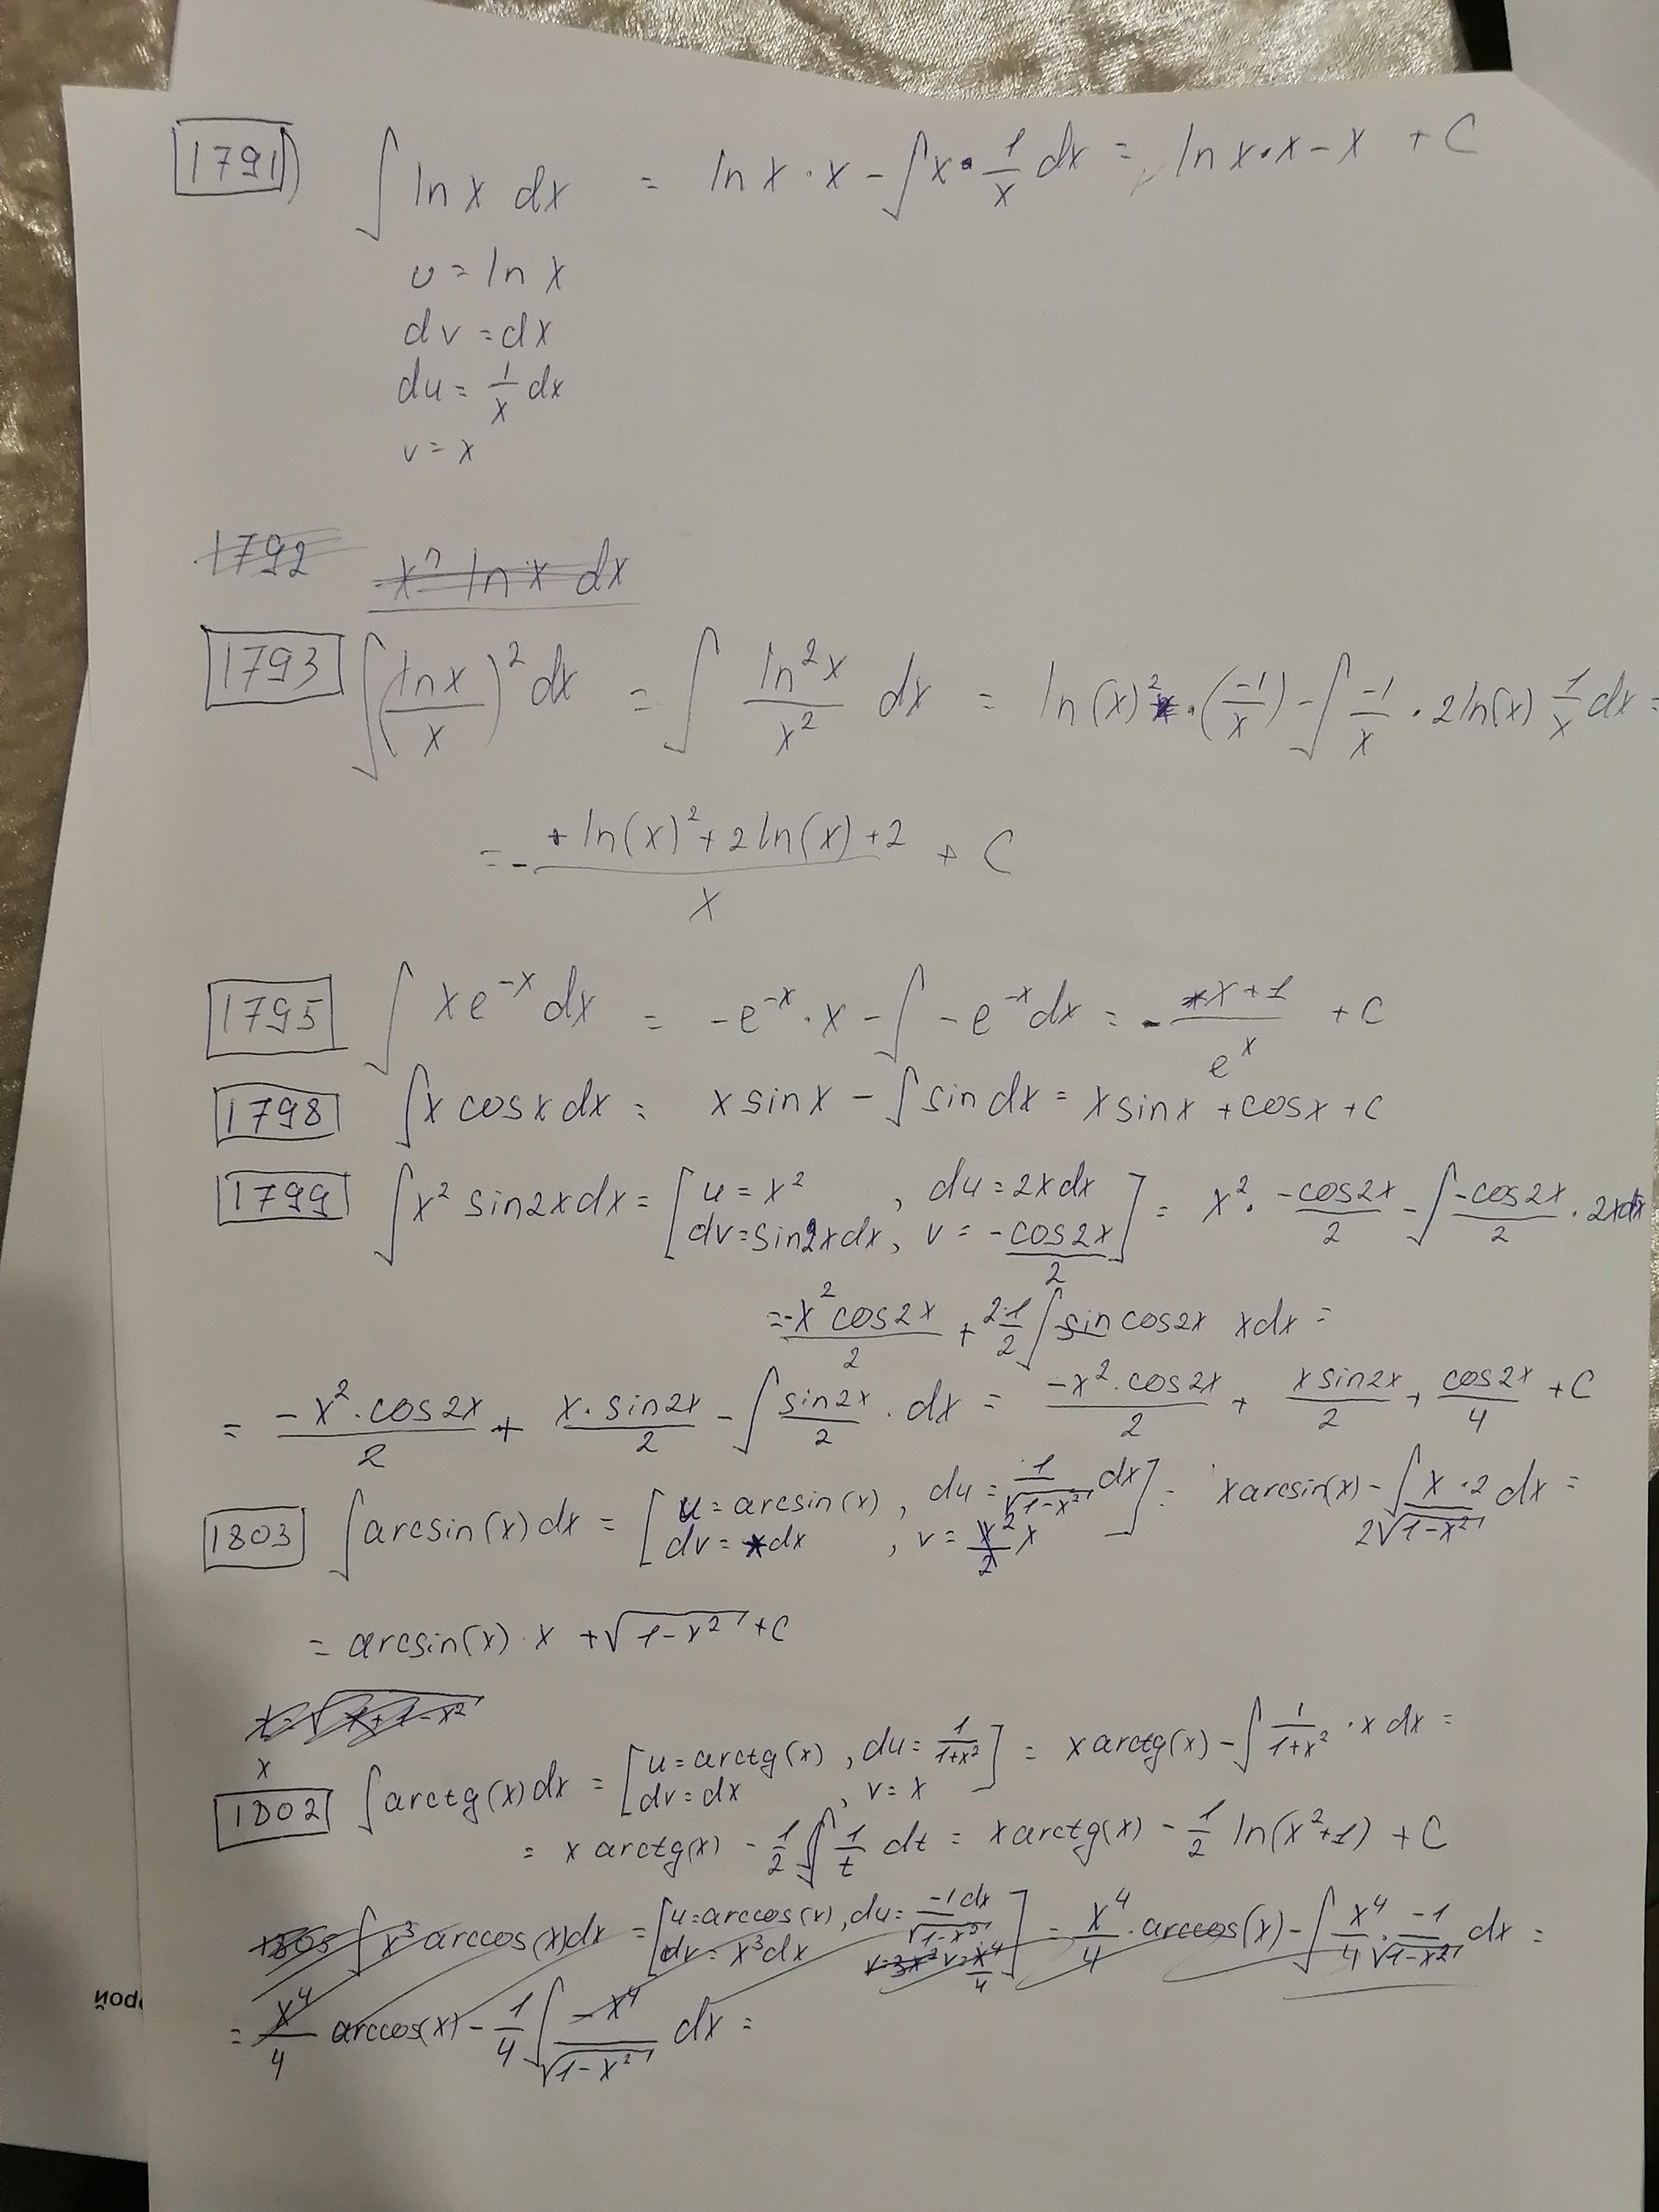 1791) ∫ ln x dx = ln x · x − ∫ x · 1/x dx = ln x · x − x + C
u = ln x
dv = dx
du = 1/x dx
v = x
1792 x^n ln x dx
1793 ∫ (ln x / x)² dx = ∫ ln²x / x² dx = ln(x)² · (−1/x) − ∫ −1/x · 2 ln(x) 1/x dx =
= − (ln(x)² + 2 ln(x) + 2) / x + C
1795 ∫ x e^−x dx = −e^−x · x − ∫ −e^−x dx = − (x + 1) / e^x + C
1798 ∫ x cos x dx = x sin x − ∫ sin dx = x sin x + cos x + C
1799 ∫ x² sin 2x dx = [u = x², du = 2x dx
dv = sin 2x dx, v = −cos 2x / 2] = x² · −cos 2x / 2 − ∫ −cos 2x / 2 · 2x dx
= −x² cos 2x / 2 + 2·1/2 ∫ sin cos 2x x dx =
= −x² · cos 2x / 2 + x · sin 2x / 2 − ∫ sin 2x / 2 · dx = −x² · cos 2x / 2 + x sin 2x / 2 + cos 2x / 4 + C
1803 ∫ arcsin(x) dx = [u = arcsin(x), du = 1/√(1−x²) dx
dv = dx, v = x²/2 x] = x arcsin(x) − ∫ x · 2 / 2√(1−x²) dx =
= arcsin(x) · x + √(1−x²) + C
x
1802 ∫ arctg(x) dx = [u = arctg(x), du = 1/(1+x²)
dv = dx, v = x] = x arctg(x) − ∫ 1/(1+x²) · x dx =
= x arctg(x) − 1/2 ∫ 1/t dt = x arctg(x) − 1/2 ln(x²+1) + C
1805 ∫ x³ arccos(x) dx = [u = arccos(x), du = −1 dx / √(1−x²)
dv = x³ dx v = 3x² v = x⁴/4] = x⁴/4 · arccos(x) − ∫ x⁴/4 · −1/√(1−x²) dx =
= x⁴/4 arccos(x) − 1/4 ∫ −x⁴ / √(1−x²) dx =
рой